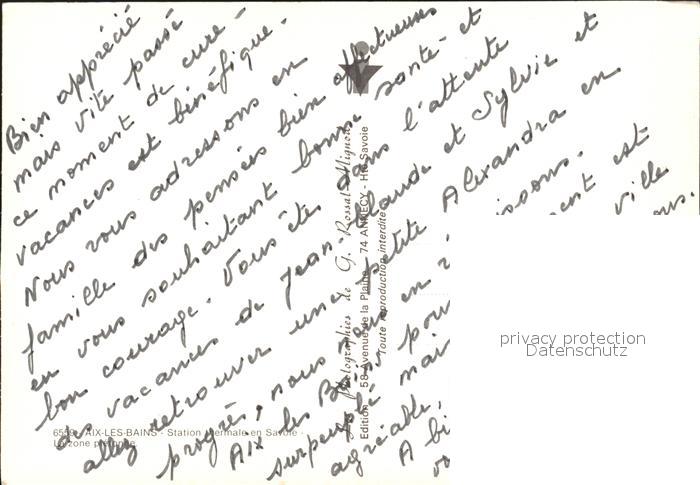 Bien apprécié
mais vite passé
ce moment de cure -
vacances est bénéfique.
Nous vous adressons en
famille des pensées bien affectueuses
en vous souhaitant bonne santé et
bon courage. Vous êtes dans l'attente
des vacances de Jean-Claude et Sylvie et
allez retrouver une petite Alexandra en
progrès, nous
Aix les B est
surpeuplé pour ville
agréable, mais
A bi
6559 - AIX-LES-BAINS - Station thermale en Savoie -
La zone piétonne
Editions Les Photographies de G. Rossat-Mignon
58 Avenue de la Plaine 74 ANNECY - Hte Savoie
Toute reproduction interdite
privacy protection
Datenschutz